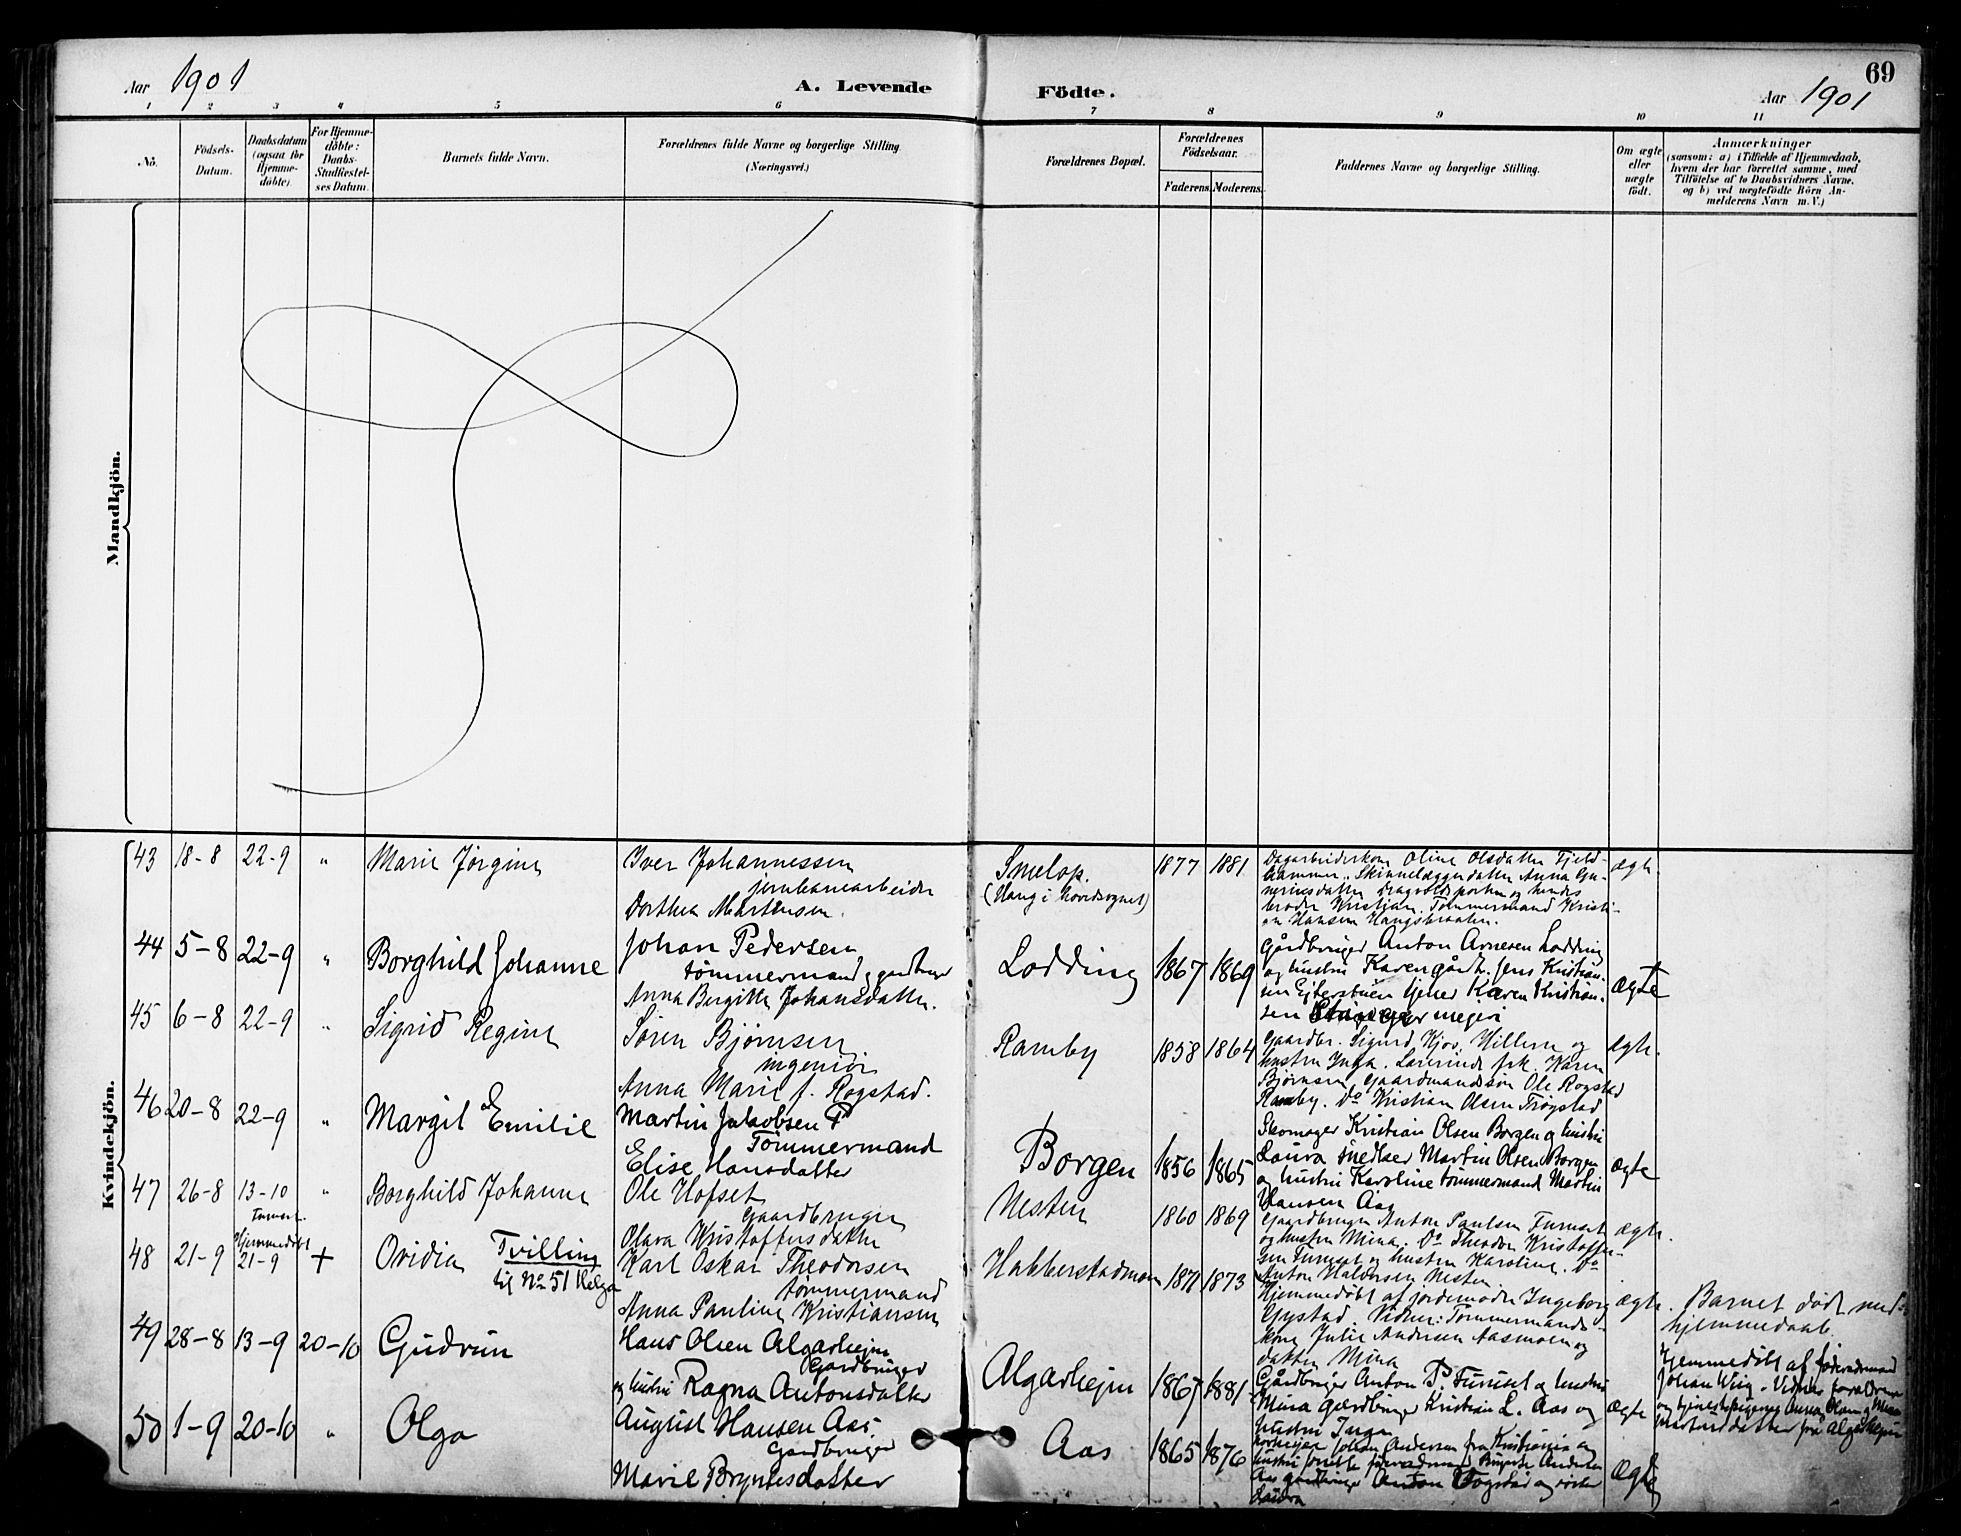 Aar 1901
A. Levende
Födte.
69
Aar 1901
1 2 3 4 5 6 7 8 9 10 11
No.
Födsels-
Datum.
Daabsdatum
(ogsaa for
Hjemme-
döbte).
For Hjemme-
döbte:
Daabs-
Stadfæstel-
ses Datum.
Barnets fulde Navn.
Forældrenes fulde Navne og borgerlige Stilling.
(Næringsvei.)
Forældrenes Bopæl.
Forældrenes
Födselsaar.
Faderens. Moderens.
Faddernes Navne og borgerlige Stilling.
Om ægte
eller
uægte
födt.
Anmærkninger
(saasom: a) i Tilfælde af Hjemmedaab,
hvem der har forrettet samme, med
Tilföielse af to Daabsvidners Navne,
og b) ved uægtefödte Börn An-
melderens Navn m. V.)
Mandkjön.
Kvindekjön.
43 18-8 22-9 " Marie Jørgine
Iver Johannessen
jernbanearbeider
Dorthea Martinsen.
Smelop.
(Haug i hovedsognet)
1877 1881
Dagarbeiderskone Oline Olsdatter Fjeld-
hammer. Skinnelæggerdatter Anna Gu-
neriusdatter Dragvoldsporten og hendes
broder Kristian. Tømmermand Kristi-
an Hansen Haugsbraaten.
ægte.
44 5-8 22-9 " Borghild Johanne
Johan Pedersen
tömmermand, gaardbruger
Anna Birgitte Johansdatter.
Lodding
1867 1869
Gårdbruger Anton Arnesen Lodding
og hustru Karen gårdt. Jens Kristian-
sen Ejterstuen tjener Karen Kristian-
sen meieri
ægte
45 6-8 22-9 " Sigrid Regine
Søren Bjørnsen
ingeniør
Anna Marie f. Rogstad.
Ramby
1858 1864
Gaardbr. Sigurd Kjos, Hillern og
hustru Inga. Lærerinde frk. Karen
Bjørnsen, Gaardmandssøn Ole Rogstad
Ramby. Do Kristian Olsen Trøgstad
ægte.
46 20-8 22-9 " Margit Emilie
Martin Jakobsen
Tömmermand
Elise Hansdatter
Borgen
1856 1865
Skomager Kristian Olsen Borgen og hustru
Laura snedker Martin Olsen Borgen
og hustru Karoline tömmermand Martin
Hansen Aas
ægte
47 26-8 13-10 " Borghild Johanne
Furuset.
Ole Hofset
Gaardbruger
Olava Kristoffersdatter
Nesten
1860 1869
Gaardbruger Anton Paulsen Furuset
og hustru Mina. Do Theodor Kristoffer-
sen Furuset og hustru Karoline. Do
Anton Halvorsen Nesten
ægte.
48 21-9 Hjemmedöbt 21-9 + Ovidia Tvilling
til No 51 Helga
Karl Oskar Theodorsen
tömmermand
Anna Pauline Kristiansen
Habberstadmoen
1871 1873
Hjemmedöbt af jordemoder Ingeborg
Gystad. Vidner: Tömmermands-
kone Julie Andersen Aasmoen og
datter Mina
ægte.
Barnet döde med
hjemmedaab.
49 28-8 13-9 20-10 Gudrun
Hans Olsen Algarhejm
Gårdbruger
og hustru Ragna Antonsdatter
Algarhejm
1867 1881
Gårdbruger Anton P. Furuset og hustru
Mina gårdbruger Kristian L. Aas og
hustru Inga
ægte
Hjemmedöbt af föderaadsmand
Johan Wiig. Vidner forældrene
og tjenestepigerne Anna Olsen og Mina
Martinsdatter fra Algarhejm
50 1-9 20-10 " Olga
August Hansen Aas
Gårdbruger
Marie Bryntesdatter
Aas
1865 1876
Johan Andersen fra Kristiania og
hustru föderaadsmand Andersen
Aas gårdbruger Anton Fogstad og söster
Laura
ægte